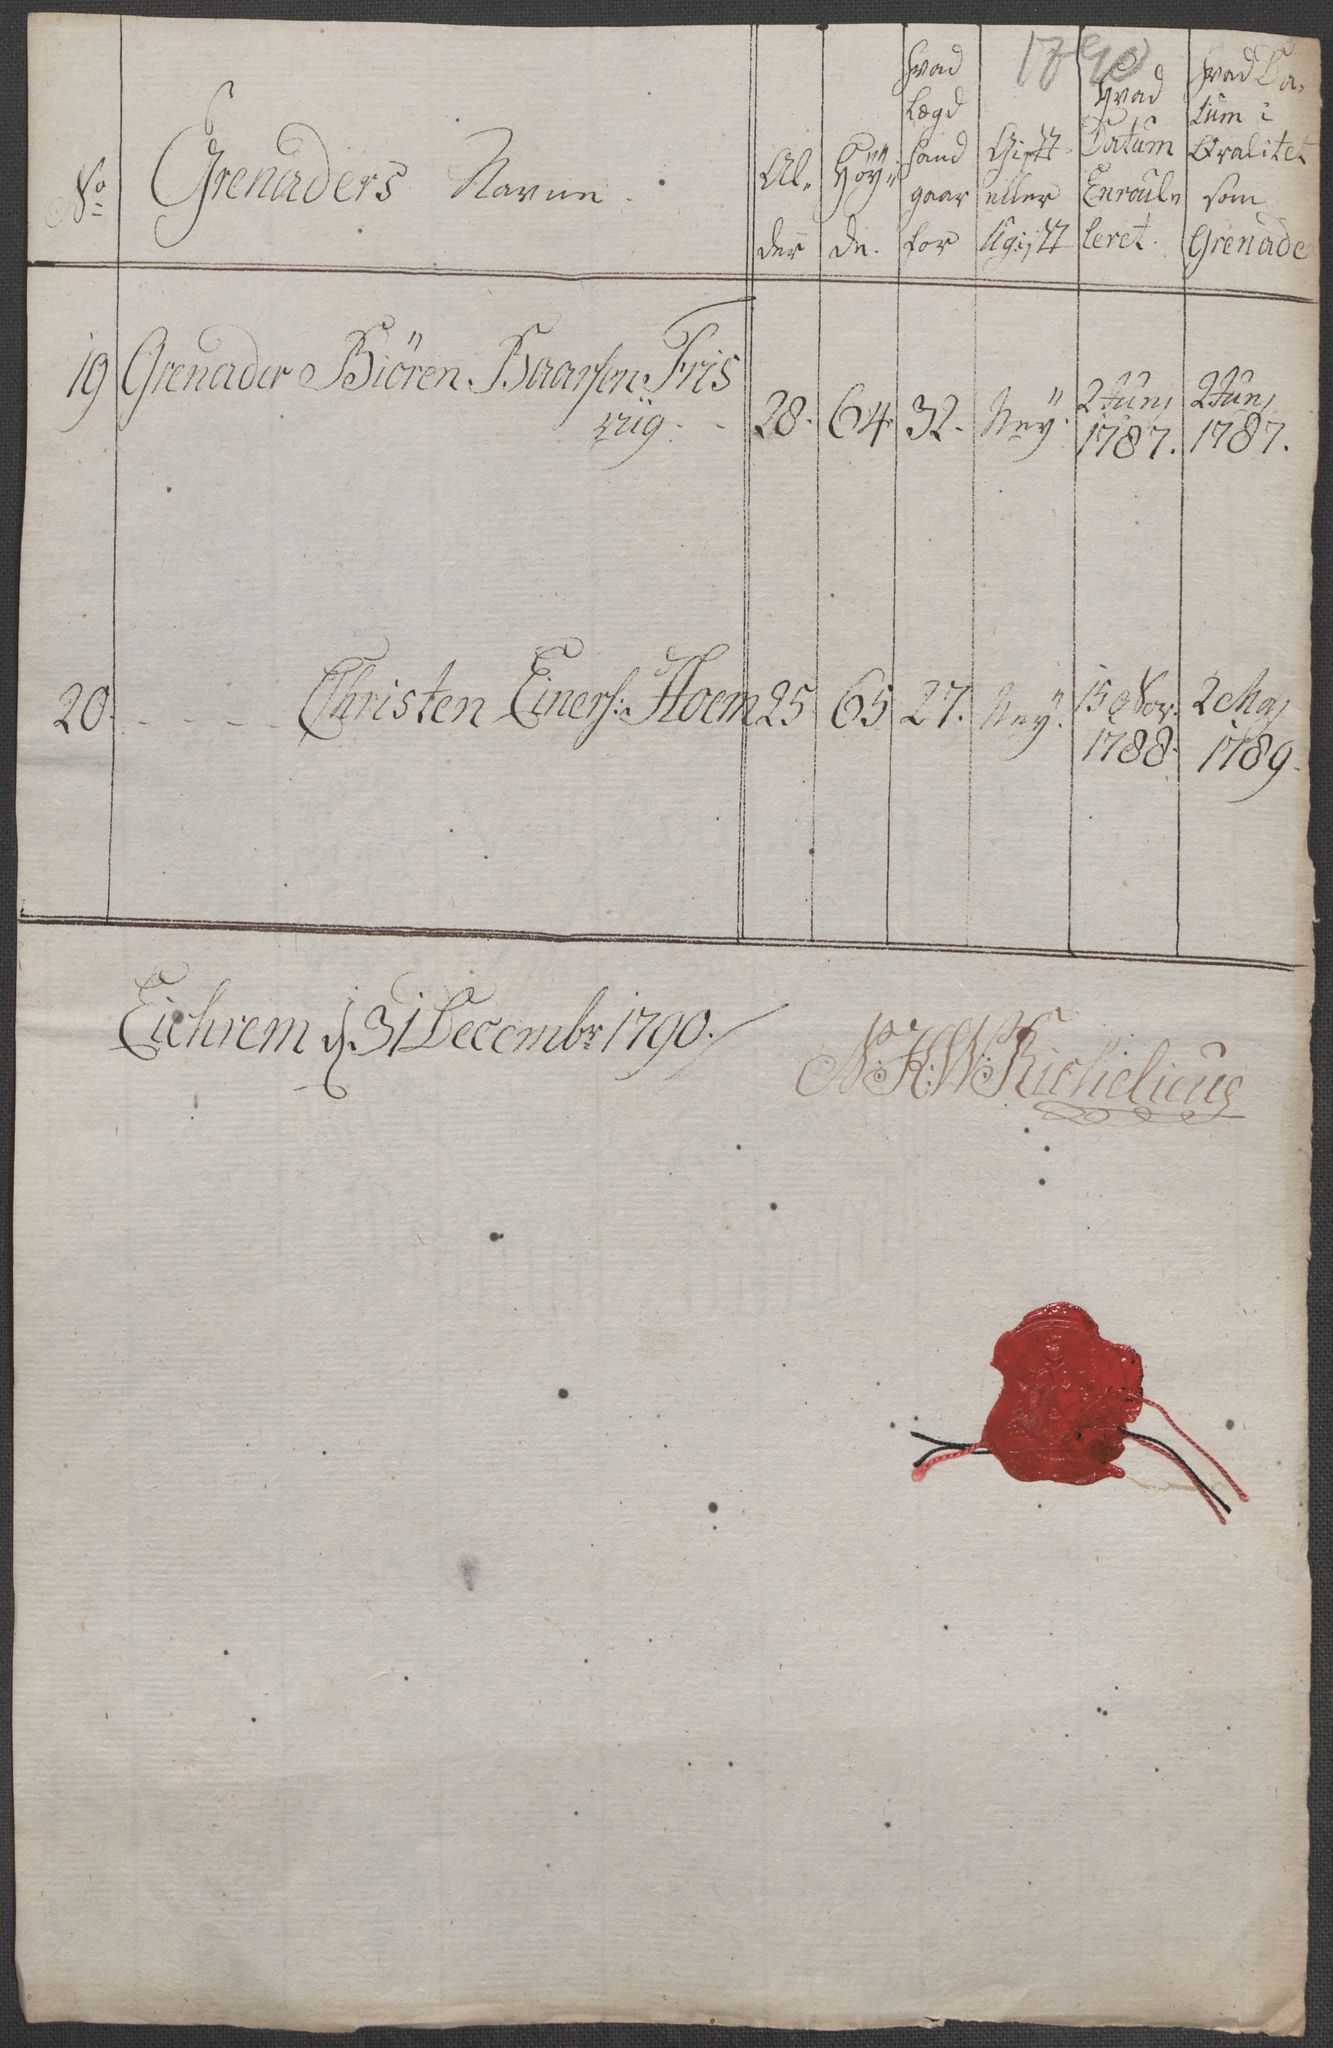 1790
No
Grenaders Navne.
Al-
der
Höÿ-
de.
hvad
Lægd
hand
gaar
for
Gift
eller
Ugift
hvad
Datum
Enroul-
leret.
hvad Da-
tum i
Qvalitet
som
Grenade
19 Grenader Biören Baarsen Fris
28. 64. 32. Neÿ. 2 Juni 1787. 2 Juni 1787.
20. - - - - Christen Einers: Hoem 25 65 27. Neÿ. 15 Nov: 1788. 2 Maj 1789.
Eichrem d. 31 Decembr 1790.
N: H: W: Richelieus